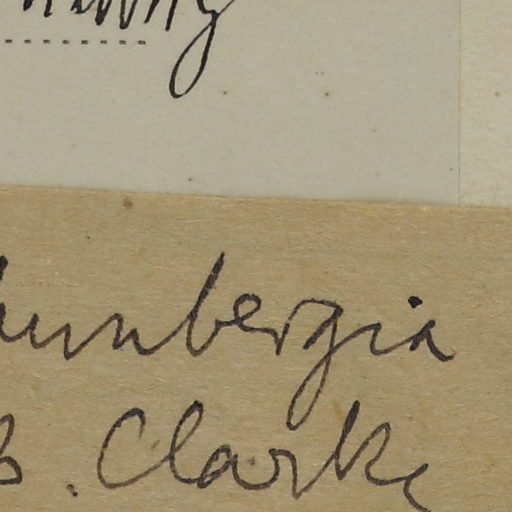 hunbergia
B. Clarke